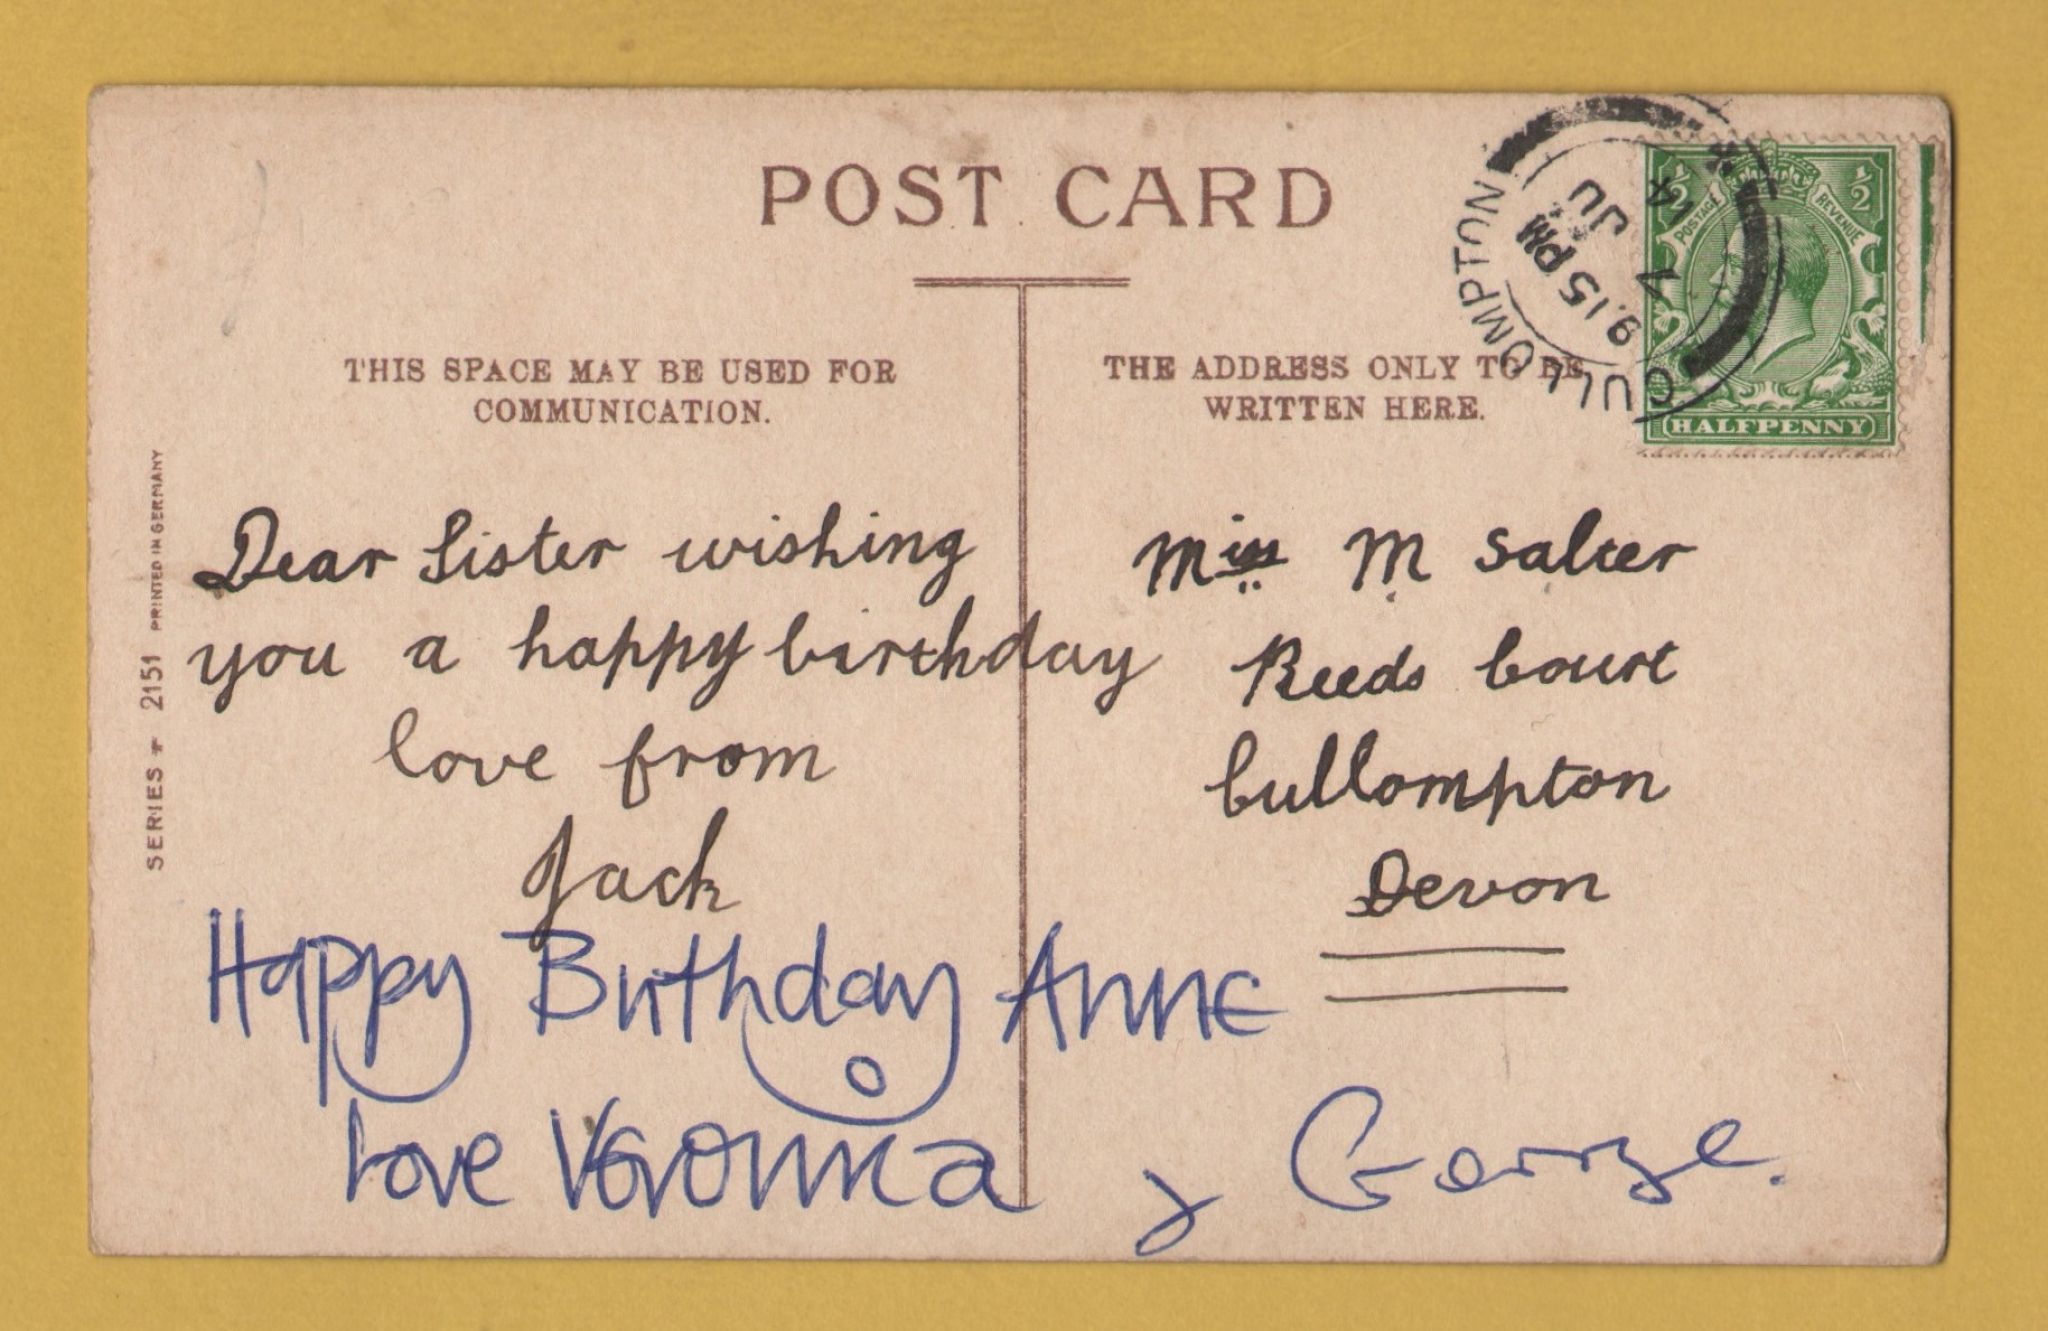 POST CARD
THIS SPACE MAY BE USED FOR
COMMUNICATION.
THE ADDRESS ONLY TO BE
WRITTEN HERE.
CULLOMPTON
9.15 PM
7 JU
14
½ ½
POSTAGE REVENUE
HALFPENNY
SERIES 2151 PRINTED IN GERMANY
Dear Sister wishing
you a happy birthday
love from
Jack
Miss M Salter
Reeds Court
Cullompton
Devon
Happy Birthday Anne
Love Veronica & George.